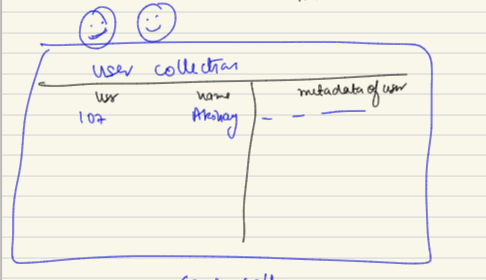 user collection
usr name metadata of user
107 Akshay - - —